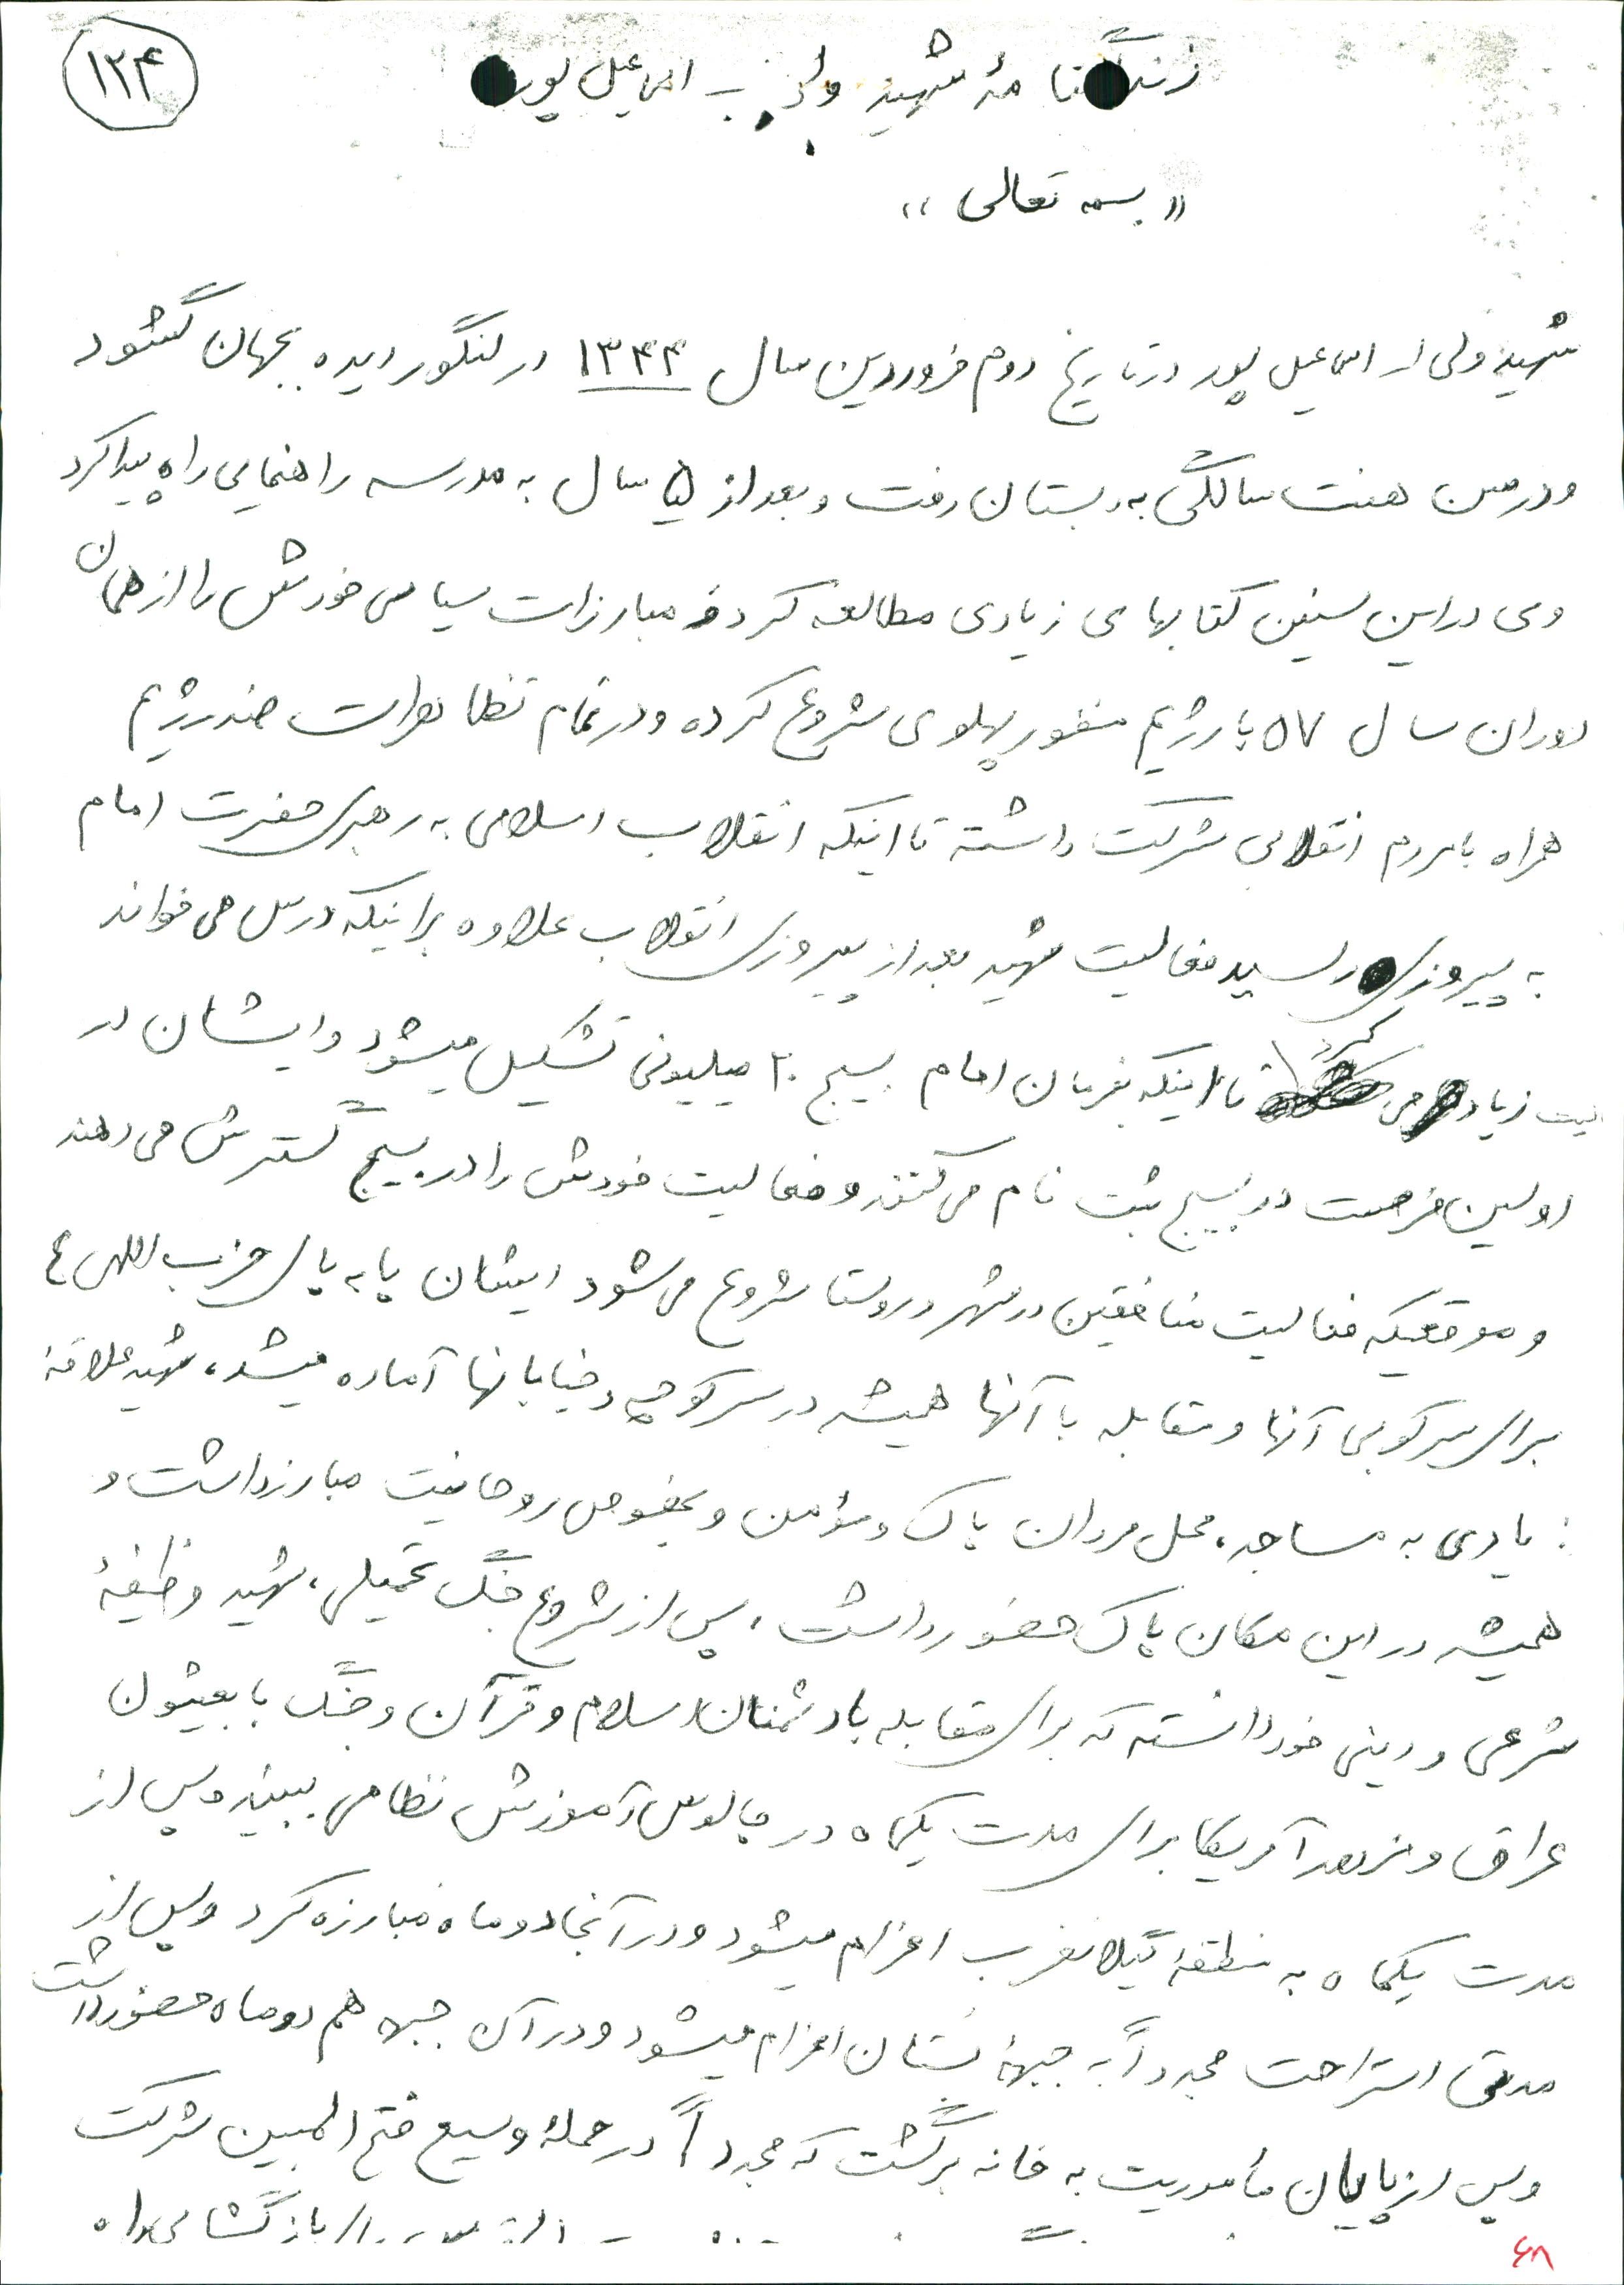 ۱۲۴
زندگینامهٔ شهید ولی ... اسماعیل پور
« بسمه تعالی »
شهید ولی ا... اسماعیل پور در تاریخ دوم فروردین سال ۱۳۴۴ در لنگور دیده بجهان گشود
و در سن هفت سالگی به دبستان رفت و بعد از ۵ سال به مدرسه راهنمایی راه پیدا کرد
وی در این سنین کتابهای زیادی مطالعه کرد و مبارزات سیاسی خودش را از همان
دوران سال ۵۷ با رژیم منفور پهلوی شروع کرده و در تمام تظاهرات ضد رژیم
همراه با مردم انقلابی شرکت داشته تا اینکه انقلاب اسلامی به رهبری حضرت امام
به پیروزی رسید فعالیت شهید بعد از پیروزی انقلاب علاوه براینکه درس می خواند
زیادی می کرد تا اینکه بفرمان امام بسیج ۲۰ میلیونی تشکیل میشود و ایشان در
اولین فرصت در بسیج ثبت نام می کنند و فعالیت خودش را در بسیج گسترش می دهند
و موقعیکه فعالیت منافقین در شهر و روستا شروع می شود ایشان پا به پای حزب اللهی
برای سرکوبی آنها و مقابله با آنها همیشه در سر کوچه و خیابانها آماده میشد، شهید علاقهٔ
زیادی به مساجد، محل مردان پاک و مؤمن و بخصوص روحانیت مبارز داشت و
همیشه در این مکان پاک حضور داشت، پس از شروع جنگ تحمیلی، شهید وظیفهٔ
شرعی و دینی خود دانسته که برای مقابله با دشمنان اسلام و قرآن و جنگ با بعثیون
عراق و مزدور آمریکا برای مدت یکماه در چالوس آموزش نظامی ببیند و پس از
مدت یکماه به منطقهٔ گیلانغرب اعزام میشود و در آنجا دو ماه مبارزه کرد و پس از
مدتی استراحت مجدداً به جبههٔ بستان اعزام میشود و در آن جبهه هم دو ماه حضور داشت
و پس از پایان مأموریت به خانه برگشت که مجدداً در حملهٔ وسیع فتح المبین شرکت
بازگشایی راه
۶۸